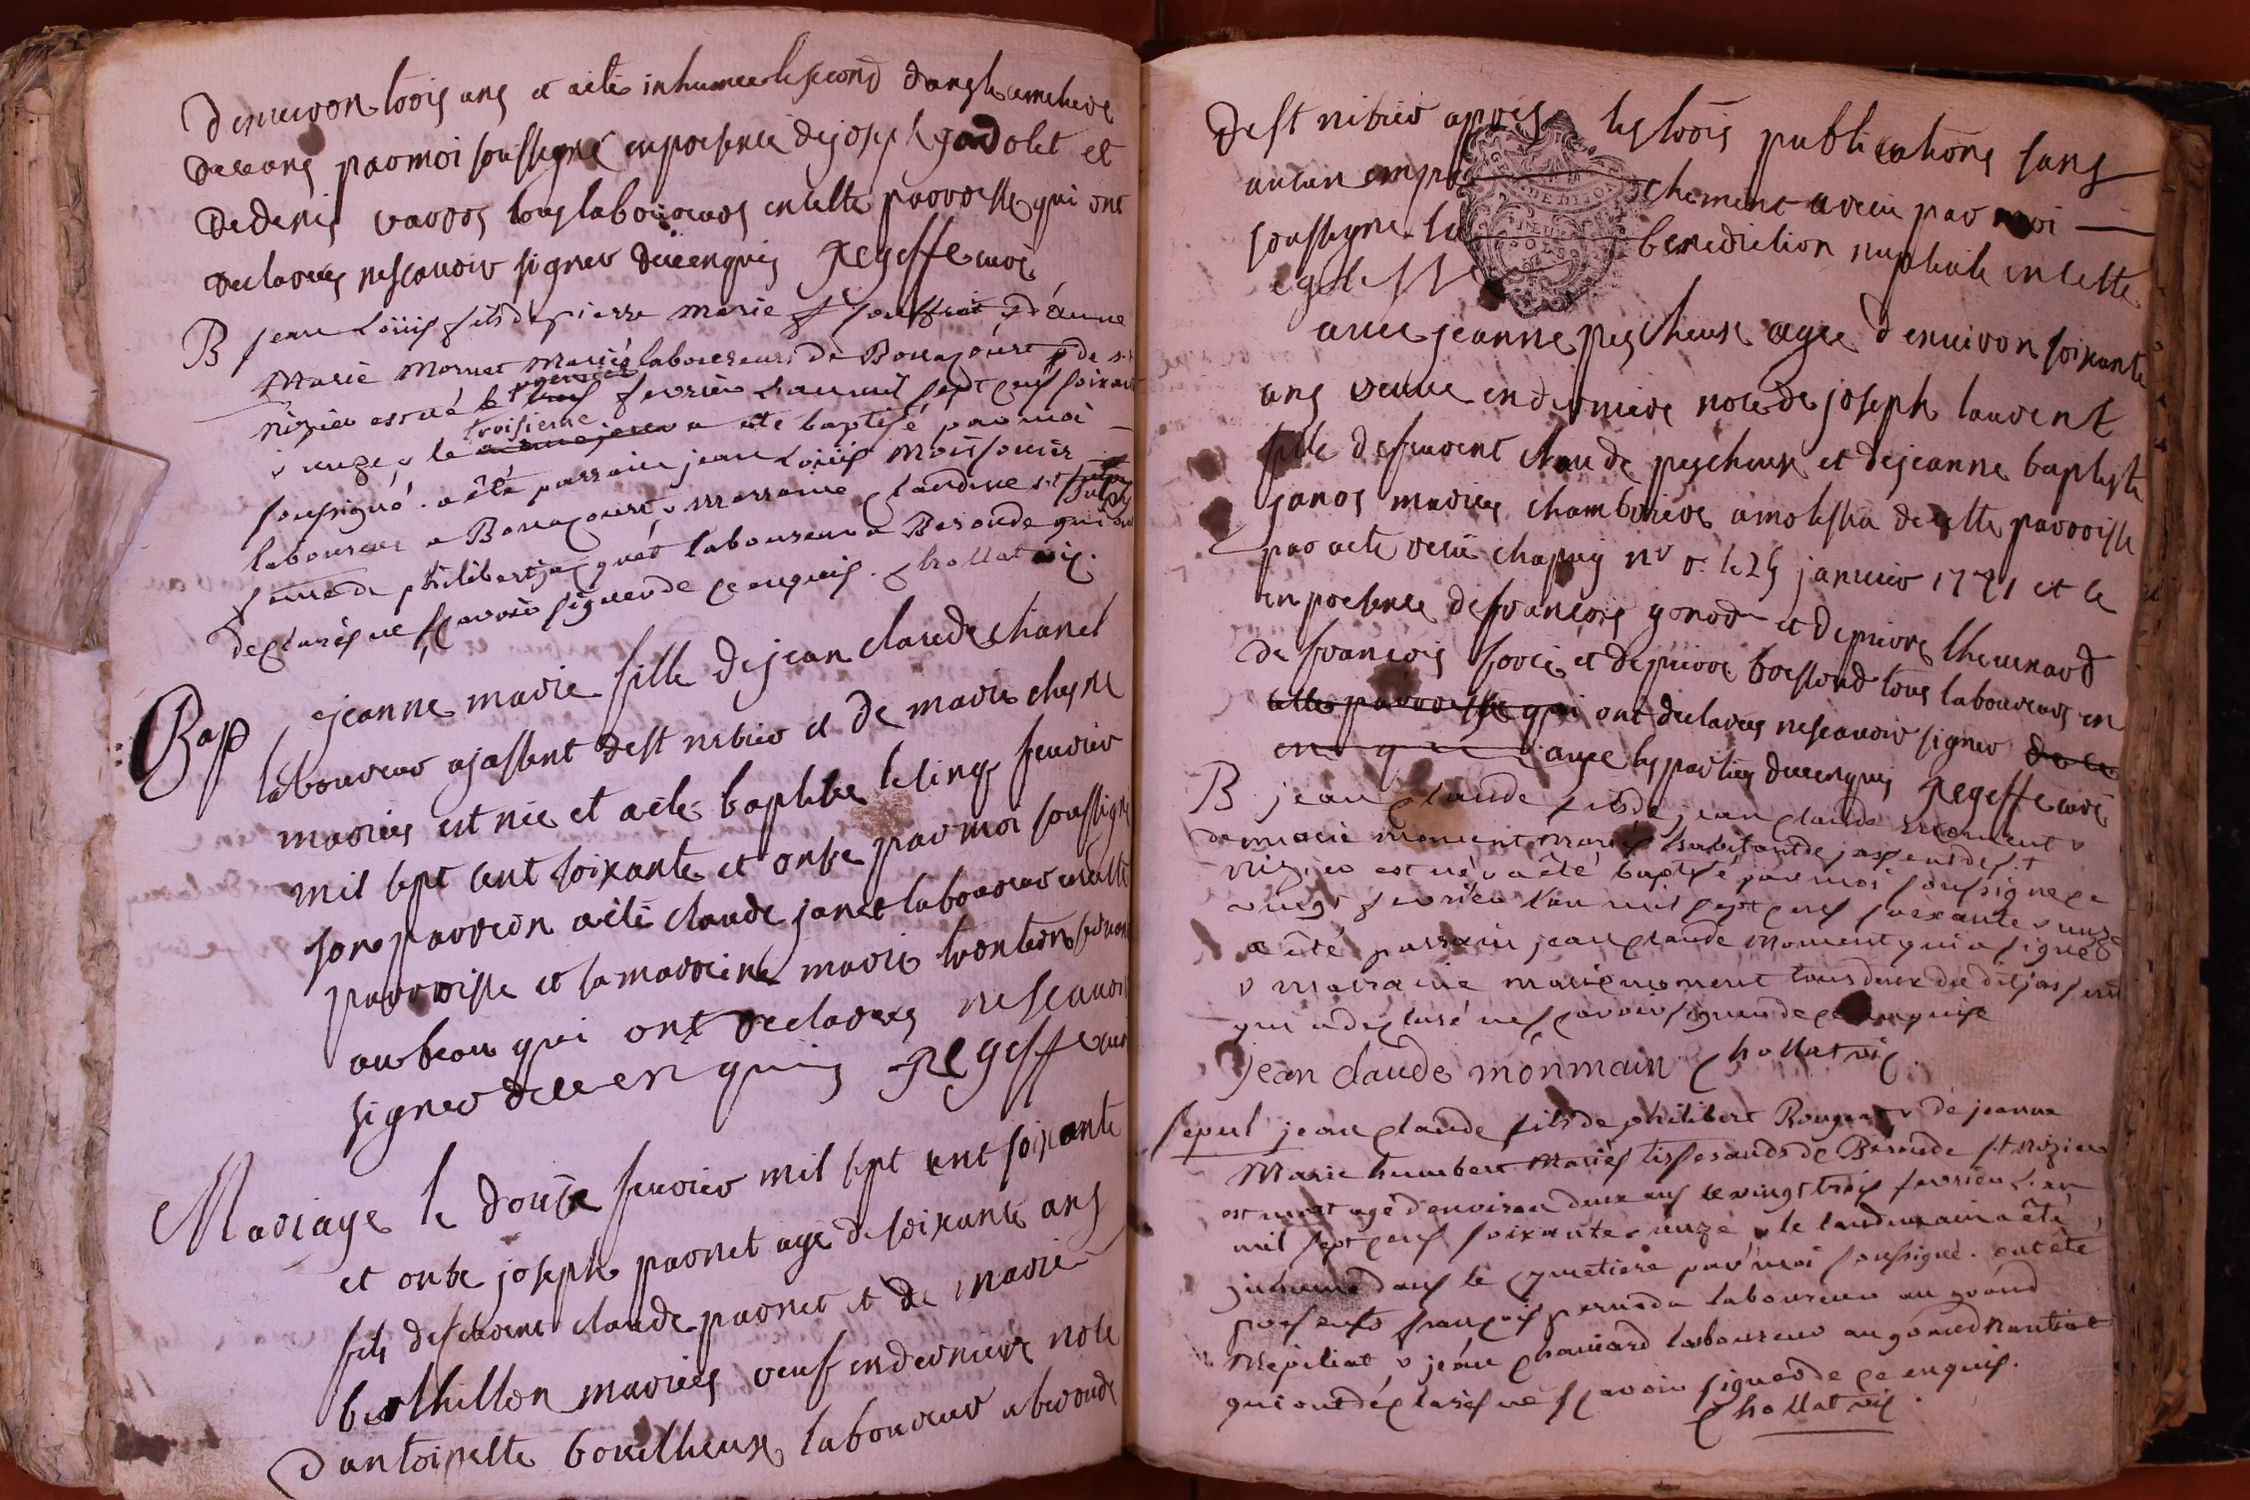 denviron trois ans a été inhumée le second dans le cimetiere
de ceans par moi soussigné en presence de joseph gadolet et
de denis varros tous laboureurs en cette parroisse qui ont
declarés ne scavoir signer de ce enquis Regeffe curé
B jean Loüis fils de pierre marie
Marie Mornet Mariés laboureurs de Bonnacourt de st
nizier est né le premier fevrier l'an mil sept cens soixante
v unze v le troisieme a été baptisé par moi
soussigné. a été parrain jean Loüis Moissonier
laboureur a Bonnacourt, v marraine Claudine
femme de philibert jacquet laboureur a Beroude qui ont
declarés ne scavoir signer de ce enquis. Chollat vic.
Bap jeanne marie fille de jean claude chanel
laboureur a jassent de st nibier et de marie chesne
mariés est née et a été baptisée le cinq fevrier
mil sept cent soixante et onze par moi soussigné
son parrein a été claude janet laboureur en cette
parroisse et sa marreine marie
qui ont declarés ne scavoir
signer de ce enquis Regeffe curé
Mariage le douze fevrier mil sept cent soixante
et onze joseph parnet agé de soixante ans
fils de fuent claude parnet et de marie
berthillon mariés veuf en derniere noce
d antoinette bouilleux laboureur a beroude
de st nibier apres les trois publications sans
aucun empechement a recu par moi
soussigné la benediction nuptiale en cette
eglise
avec jeanne pescheux agée d environ soixante
ans veuve en derniere noce de joseph laurent
fille de fuent claude pescheux et de jeanne baptiste
janos mariés de cette parroisse
par acte receu chapuy nre r. le 25 janvier 1771 et ce
en presence de francois gonod et de pierre thevenard
de francois forei et de pierre tous laboureurs en
cette parroisse qui ont declarés ne scavoir signer de ce
enquis avec les parties de ce enquis Regeffe curé
B. jean Claude fils de jean Claude moment v
de marie moment mariés habitants de jassens de st
nizier est né v a été baptisé par moi soussigné ce
vingt fevrier l'an mil sept cens soixante v unze
a été parrain jean Claude moment qui a signé
v marraine marie moment tous deux du dit jassens
qui a declaré ne scavoir signer de ce enquise
jean claude monmain Chollat vic.
sepul jean Claude fils de philibert Rougeat v de jeanne
Marie humbert Mariés tisserands de Beroude st nizier
est mort agé d'environ deux ans le vingt trois fevrier l'an
mil sept cens soixante v unze, v le landemain a été
inhumé dans le cymetiere par moi soussigné. ont été
presents françois peruoda laboureur au grand
Mépiliat, v jean Chanard laboureur au grand
qui ont déclarés ne scavoir signer de ce enquis.
Chollat vic.